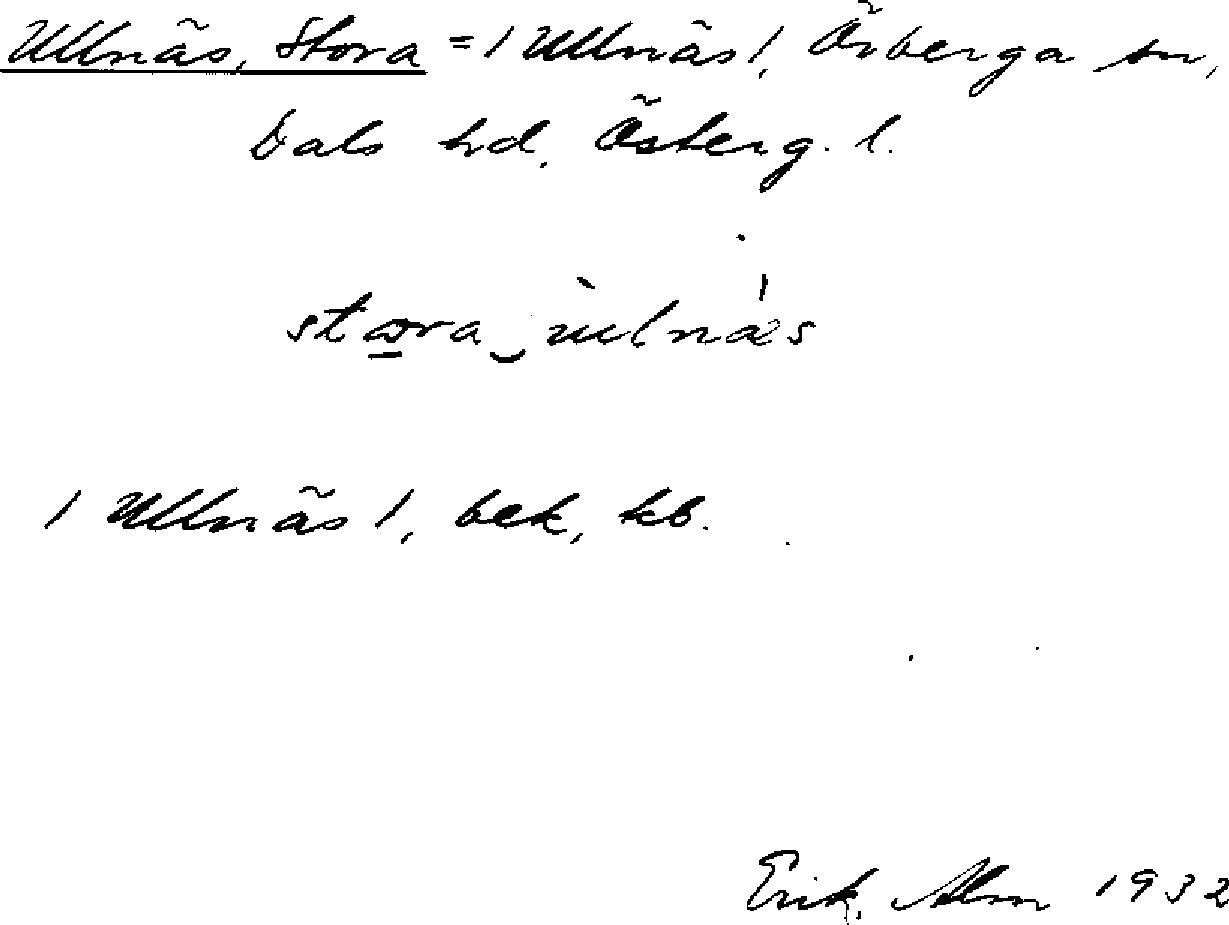 Ullnäs, Stora = / Ullnäs /, Örberga sn,
Dals hd, Österg. l.
stωra‿ùlnǽs
/ Ullnäs /, bek, kb.
Erik Alm 1932